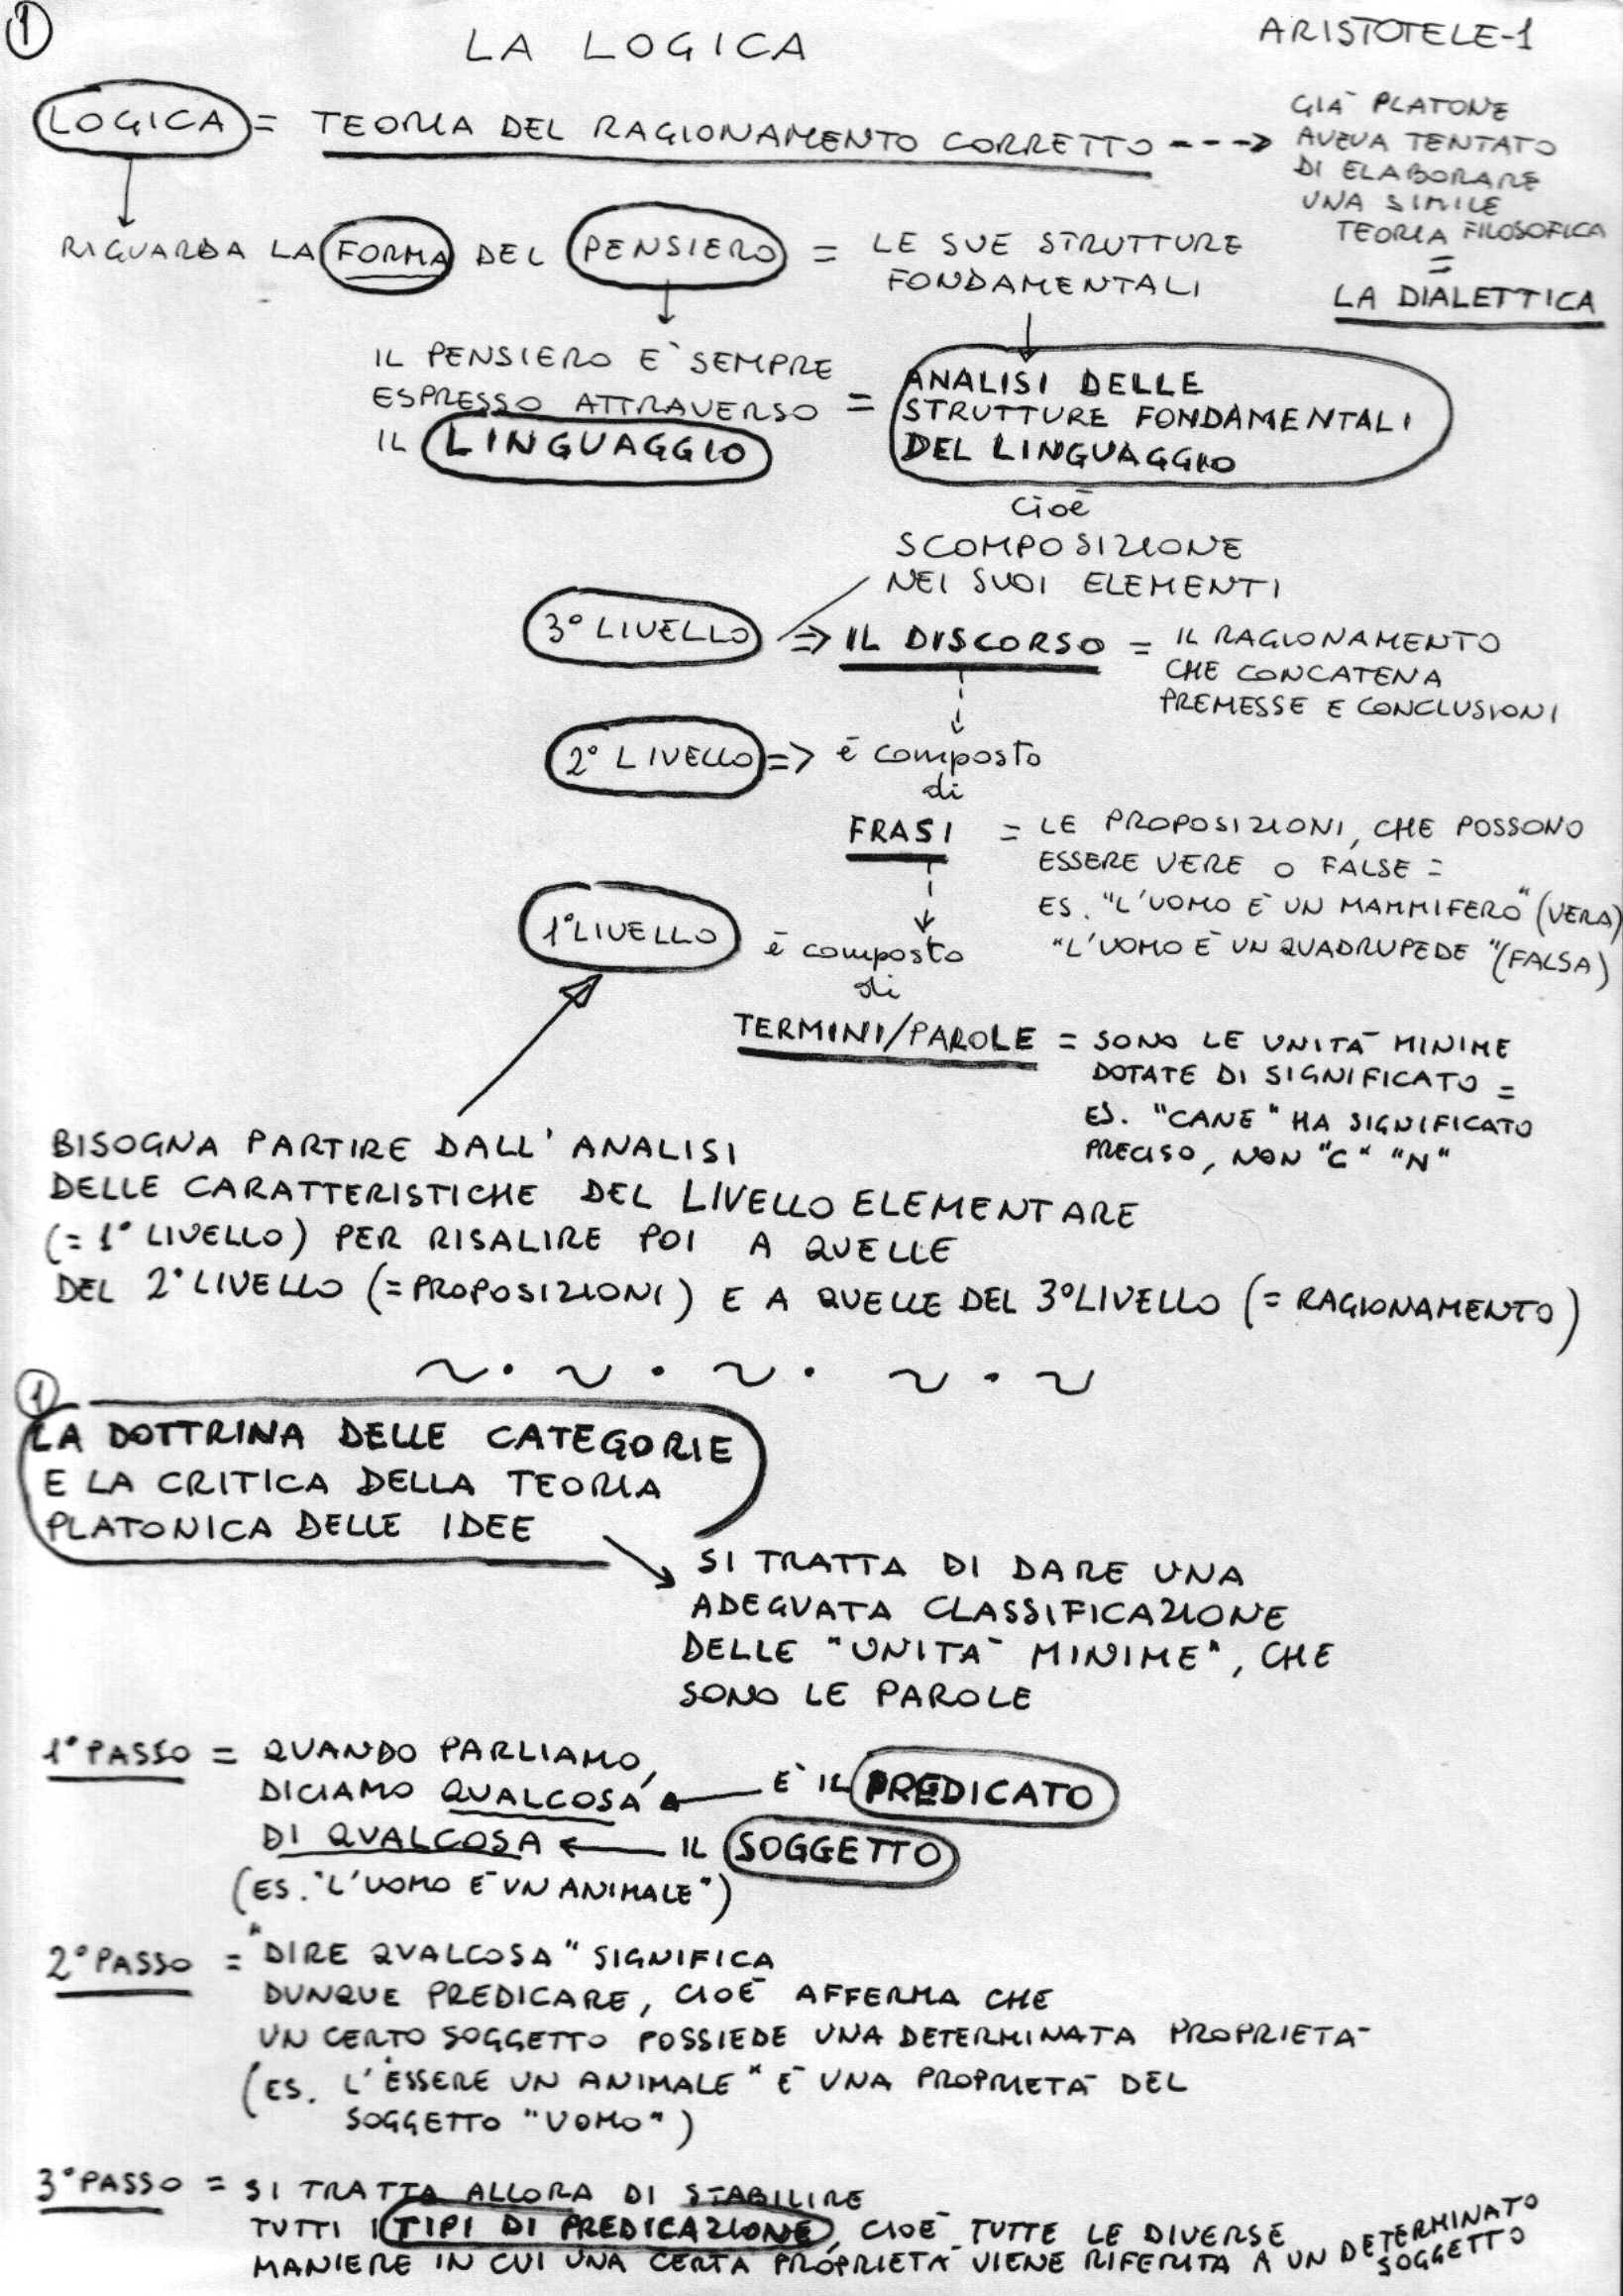 1
LA LOGICA
ARISTOTELE-1
LOGICA = TEORIA DEL RAGIONAMENTO CORRETTO --->
GIÀ PLATONE
AVEVA TENTATO
DI ELABORARE
UNA SIMILE
TEORIA FILOSOFICA
=
LA DIALETTICA
RIGUARDA LA FORMA DEL PENSIERO = LE SUE STRUTTURE
FONDAMENTALI
IL PENSIERO È SEMPRE
ESPRESSO ATTRAVERSO =
IL LINGUAGGIO
ANALISI DELLE
STRUTTURE FONDAMENTALI
DEL LINGUAGGIO
cioè
SCOMPOSIZIONE
NEI SUOI ELEMENTI
3° LIVELLO => IL DISCORSO = IL RAGIONAMENTO
CHE CONCATENA
PREMESSE E CONCLUSIONI
2° LIVELLO => è composto
di
FRASI = LE PROPOSIZIONI, CHE POSSONO
ESSERE VERE O FALSE =
ES. "L'UOMO È UN MAMMIFERO" (VERA)
"L'UOMO È UN QUADRUPEDE" (FALSA)
1° LIVELLO è composto
di
TERMINI/PAROLE = SONO LE UNITÀ MINIME
DOTATE DI SIGNIFICATO =
ES. "CANE" HA SIGNIFICATO
PRECISO, NON "C" "N"
BISOGNA PARTIRE DALL'ANALISI
DELLE CARATTERISTICHE DEL LIVELLO ELEMENTARE
(= 1° LIVELLO) PER RISALIRE POI A QUELLE
DEL 2° LIVELLO (= PROPOSIZIONI) E A QUELLE DEL 3° LIVELLO (= RAGIONAMENTO)
1
LA DOTTRINA DELLE CATEGORIE
E LA CRITICA DELLA TEORIA
PLATONICA DELLE IDEE
SI TRATTA DI DARE UNA
ADEGUATA CLASSIFICAZIONE
DELLE "UNITÀ MINIME", CHE
SONO LE PAROLE
1° PASSO = QUANDO PARLIAMO,
DICIAMO QUALCOSA È IL PREDICATO
DI QUALCOSA IL SOGGETTO
(ES. "L'UOMO È UN ANIMALE")
2° PASSO = "DIRE QUALCOSA" SIGNIFICA
DUNQUE PREDICARE, CIOÈ AFFERMA CHE
UN CERTO SOGGETTO POSSIEDE UNA DETERMINATA PROPRIETÀ
(ES. L'"ESSERE UN ANIMALE" È UNA PROPRIETÀ DEL
SOGGETTO "UOMO")
3° PASSO = SI TRATTA ALLORA DI STABILIRE
TUTTI I TIPI DI PREDICAZIONE, CIOÈ TUTTE LE DIVERSE
MANIERE IN CUI UNA CERTA PROPRIETÀ VIENE RIFERITA A UN DETERMINATO
SOGGETTO